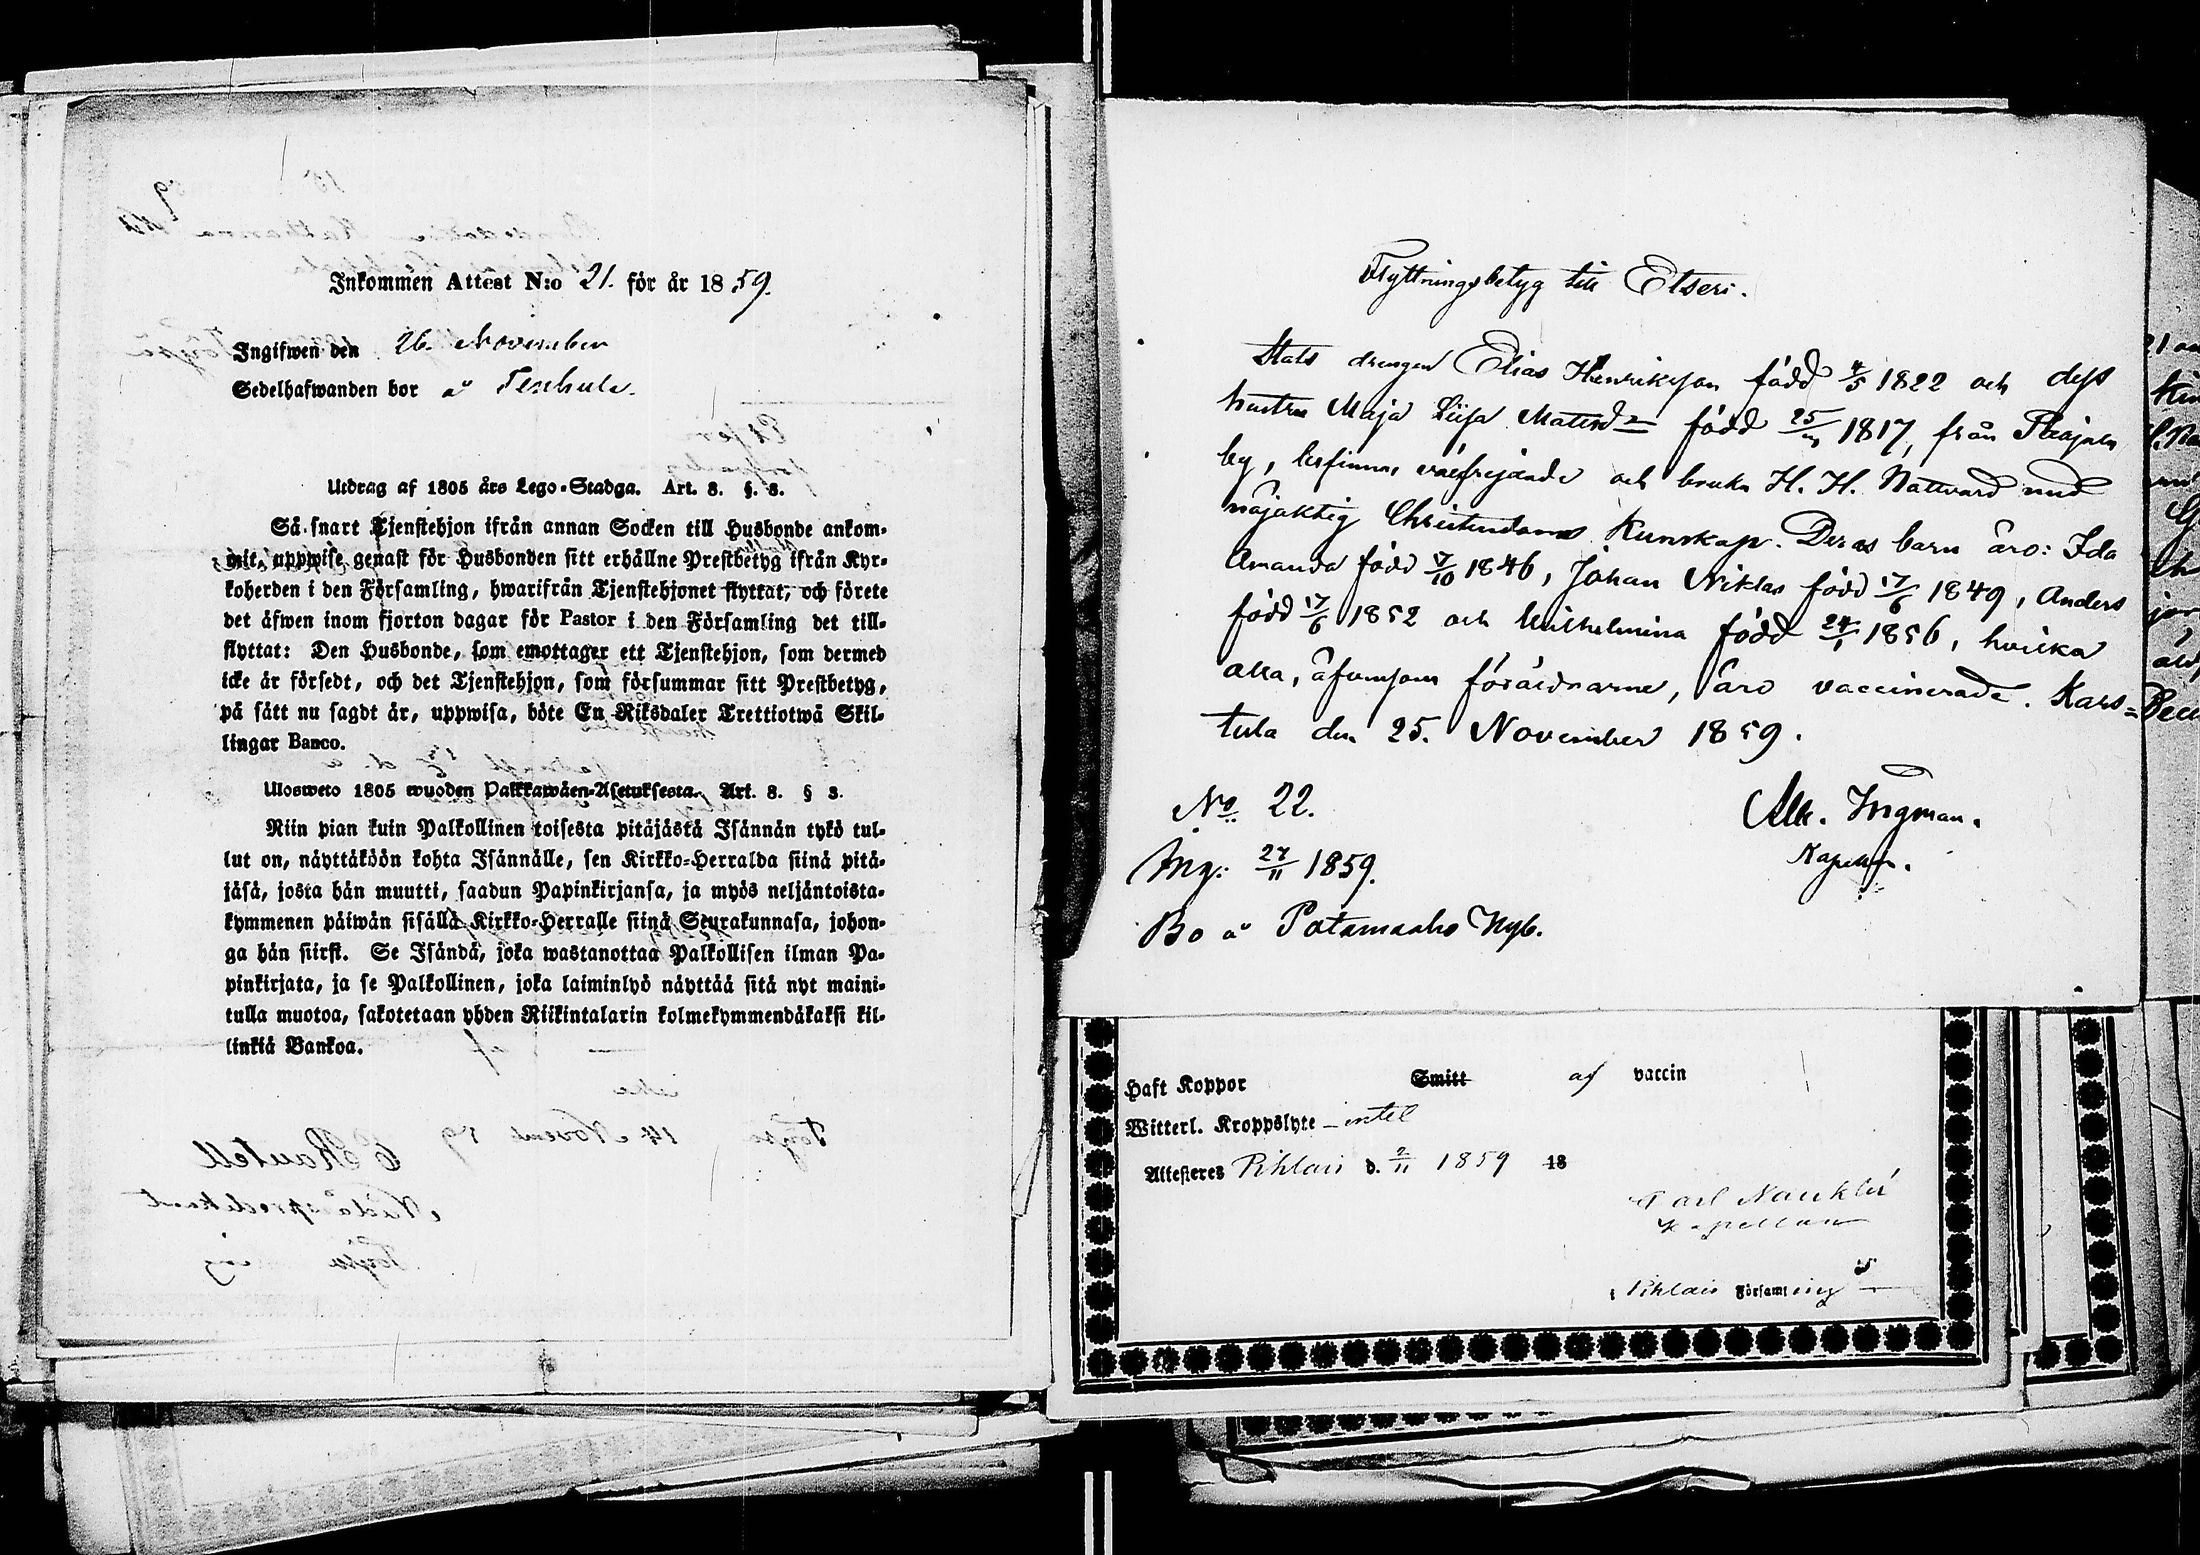 Inkommen Attest N:o 21. för år 1859.
Ingifwen den 26. November
Sedelhafwanden bor å
Utdrag af 1805 års Lego-Stadga. Art. 8. §. 8.
Så snart Tjenstehjon ifrån annan Socken till Husbonde ankom-
mit, uppwise genast för Husbonden sitt erhållne Prestbetyg ifrån Kyr-
koherden i den Församling, hwarifrån Tjenstehjonet flyttat, och förete
det äfwen inom fjorton dagar för Pastor i den Församling det till-
flyttat: Den Husbonde, som emottager ett Tjenstehjon, som dermed
icke är försedt, och det Tjenstehjon, som försummar sitt Prestbetyg,
på sätt nu sagdt är, uppwisa, böte En Riksdaler Trettiotwå Skil-
lingar Banco.
Ulosweto 1805 wuoden Palkkawäen-Asetuksesta. Art. 8. § 8.
Niin pian kuin Palkollinen toisesta pitäjästä Isännän tykö tul-
lut on, näyttäköön kohta Isännälle, sen Kirkko-Herralda siinä pitä-
jäsä, josta hän muutti, saadun Papinkirjansa, ja myös neljäntoista-
kymmenen päiwän sisällä Kirkko-Herralle siinä Seurakunnasa, johon-
ga hän siirsi. Se Isändä, joka wastanottaa Palkollisen ilman Pa-
pinkirjata, ja se Palkollinen, joka laiminlyö näyttää sitä nyt maini-
tulla muotoa, sakotetaan yhden Riikintalarin kolmekymmendäkaksi kil-
linkiä Bankoa.
Flyttningsbetyg till Etseri.
Stats drengen Elias Henriksson född 4/5 1822 och dess
hustru Maja Liisa Matsd:r född 25/ 1817, från
by, befinnas och bruka H. H. Nattvard med
nöjaktig Christendoms Kunskap. Deras barn äro: Ida
Amanda född /10 1846, Johan Niklas född 17/6 1849, Anders
född 17/6 1852 och Wilhelmina född 24/1 1856, hvilka
alla, äfvensom föräldrarne, äro vaccinerade. Kars=
tula den 25. November 1859.
Alb. Ingman.
Kapellan.
No 22.
Ing: 27/11 1859.
Bo å Patamanho Nyb.
Haft Koppor Smitt af vaccin
Witterl. Kroppslyte – intet
Attesteres Pihlais d. 2/11 1859 18
Carl Nauklér
Kapellan
i Pihlais Församling